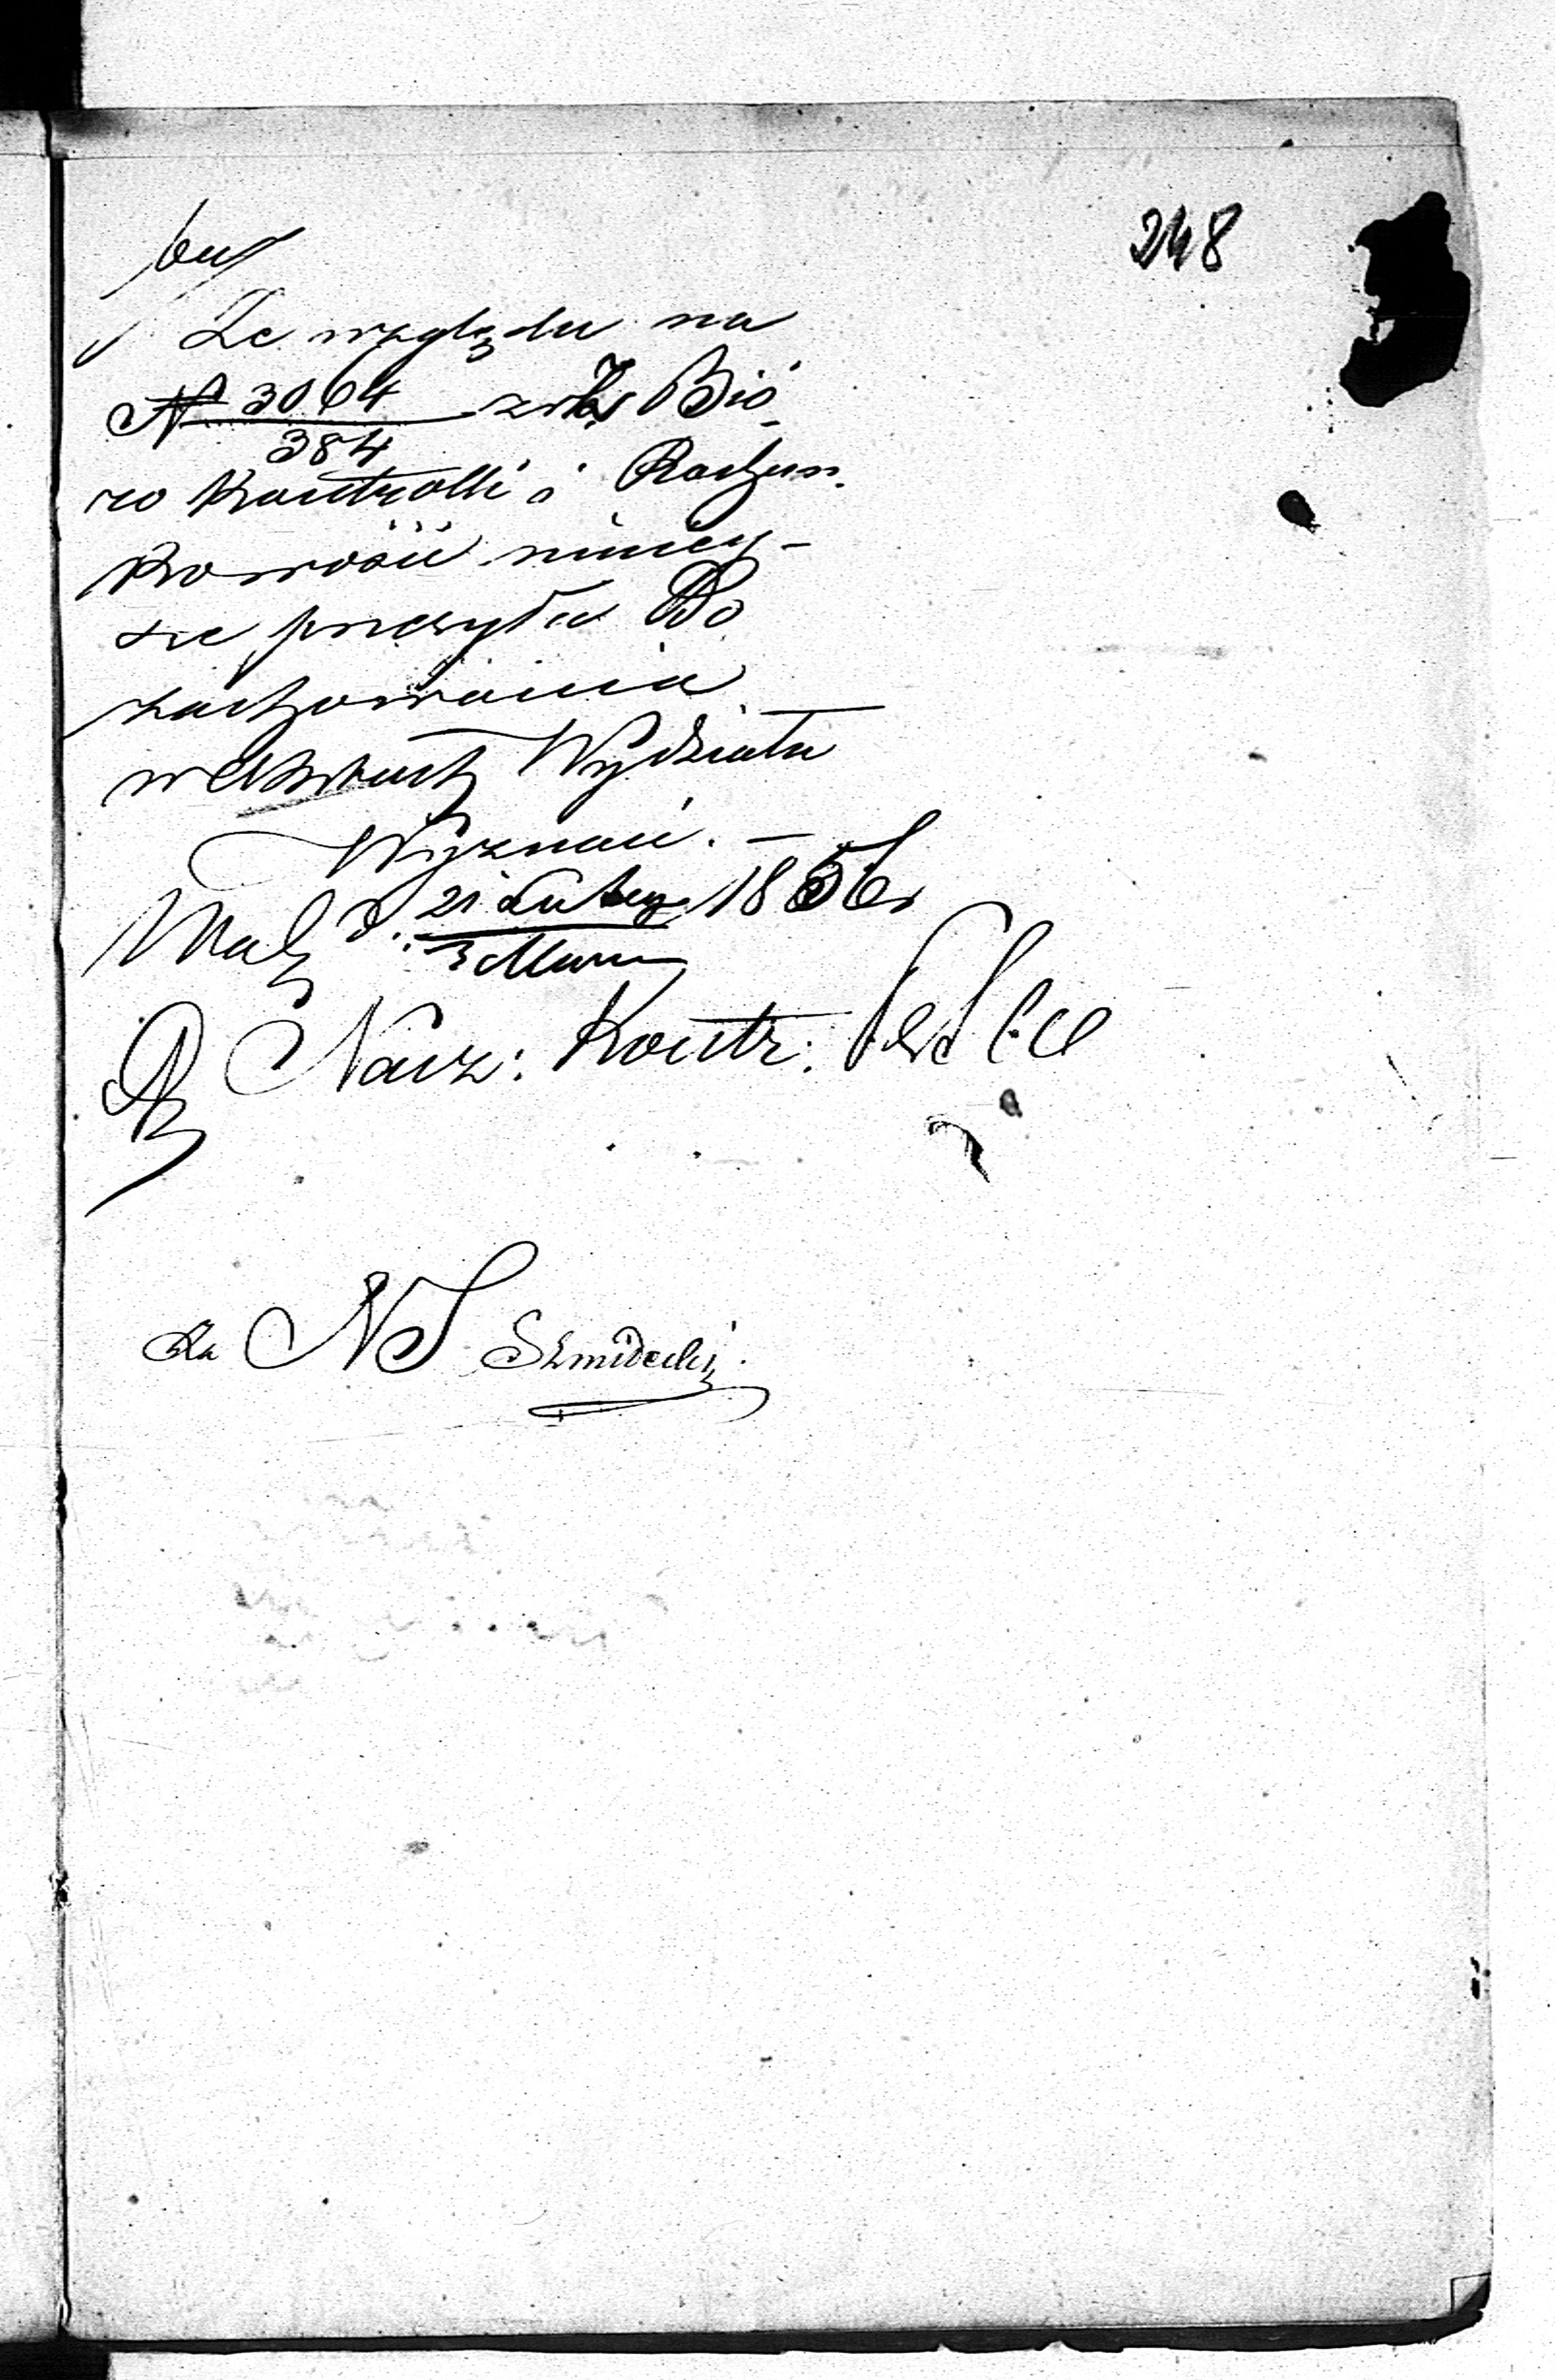 248
Ze względu na
N 3064 / 384 Bió
ro Kontrolli i Rachun.
kowości niniey-
sze przesyła do
zachowania
w Aktach Wydziału
Wyznań. —
d. 21 Lutego / 3 Marca 1856 r
Nacz: Kontr:
za NS Szmidecki